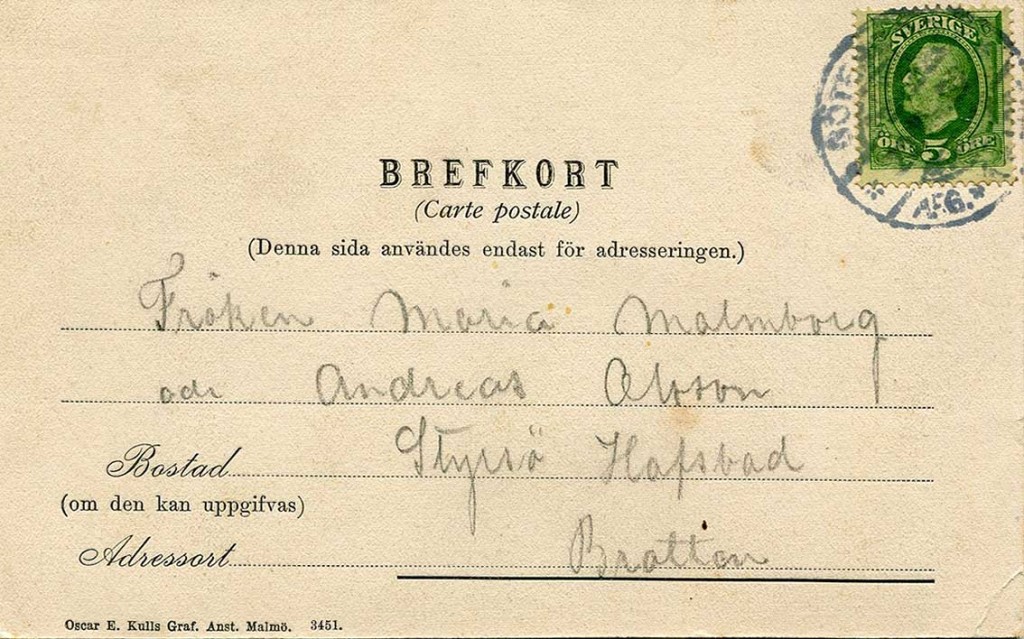 SVERIGE
ÖRE 5 ÖRE
GÖTE
AFG.
BREFKORT
(Carte postale)
(Denna sida användes endast för adresseringen.)
Fröken Maria Malmborg
adr Andreas Olsson
Bostad Styrsö Hafsbad
(om den kan uppgifvas)
Adressort Bratten
Oscar E. Kulls Graf. Anst. Malmö. 3451.